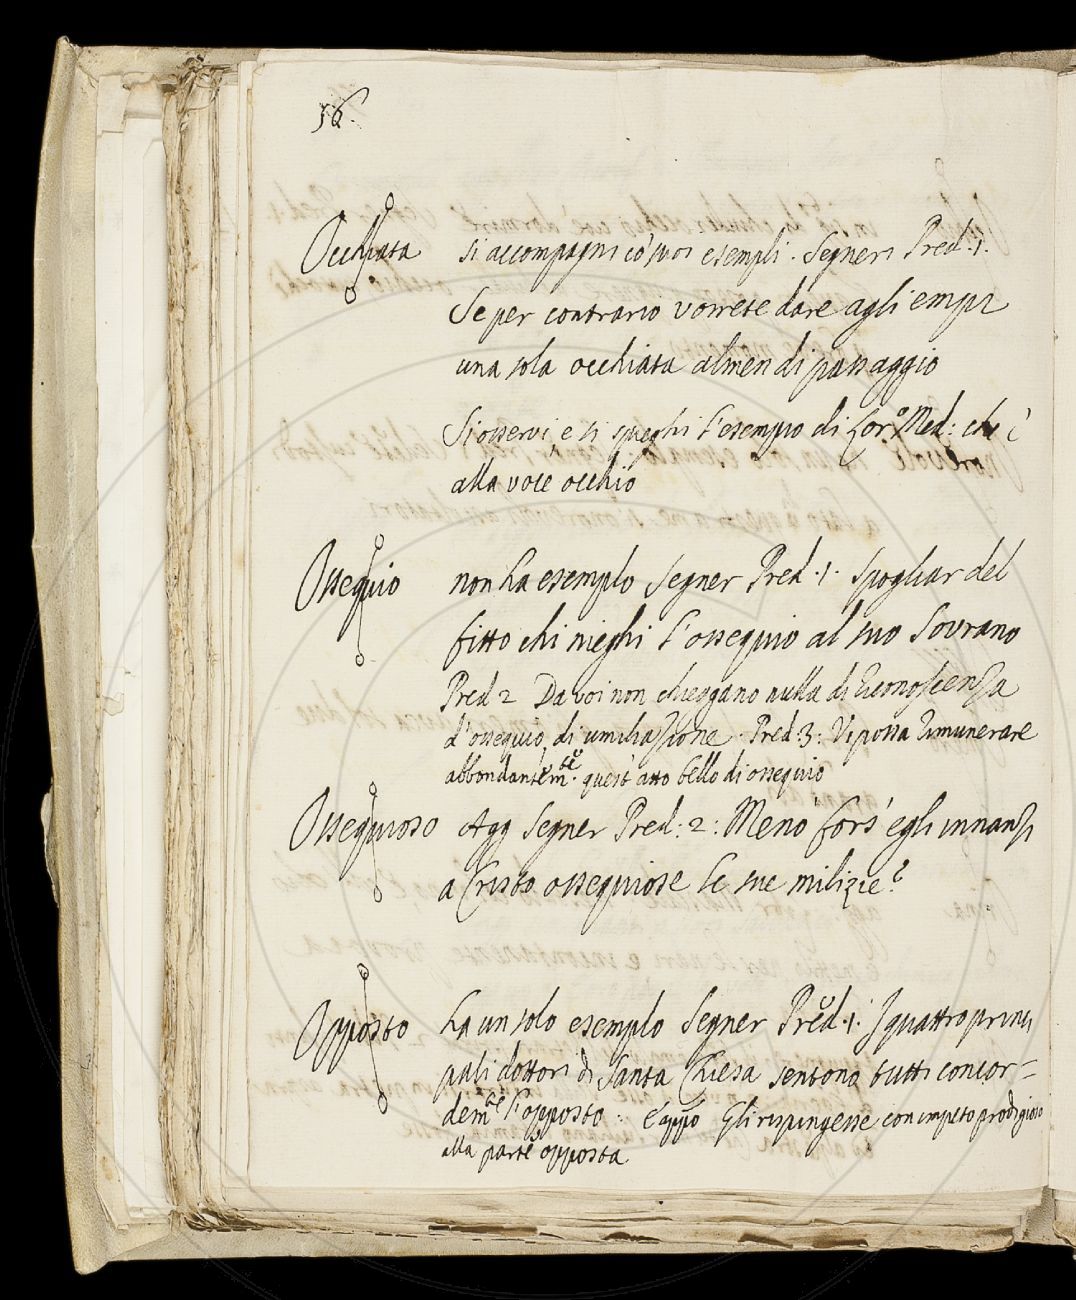 56.
Occhiata si accompagni co' suoi esempli. Segneri Pred. 1.
Se per contrario vorrete dare agli empi
una sola occhiata almen di passaggio
Si osservi e si spieghi l'esempio di Lor.º Med: che è
alla voce occhio
Ossequio non ha esemplo Segner Pred. 1. spogliar del
fitto chi nieghi l'ossequio al suo Sovrano
Pred 2 Da voi non chieggano nulla di riconoscenza
d'ossequio, di umiliazione. Pred. 3: Vi possa rimunerare
abbondantem.te quest'atto bello di ossequio
Ossequioso Agg Segner Pred: 2: Menò fors'egli innanzi
a Cristo ossequiose le sue milizie?
Opposto ha un solo esemplo Segner Pred. 1. I quattro princi
pali dottori di Santa Chiesa sentono tutti concor-
dem.te l'opposto: E app.o Gli rispingesse con impeto prodigioso
alla parte opposta